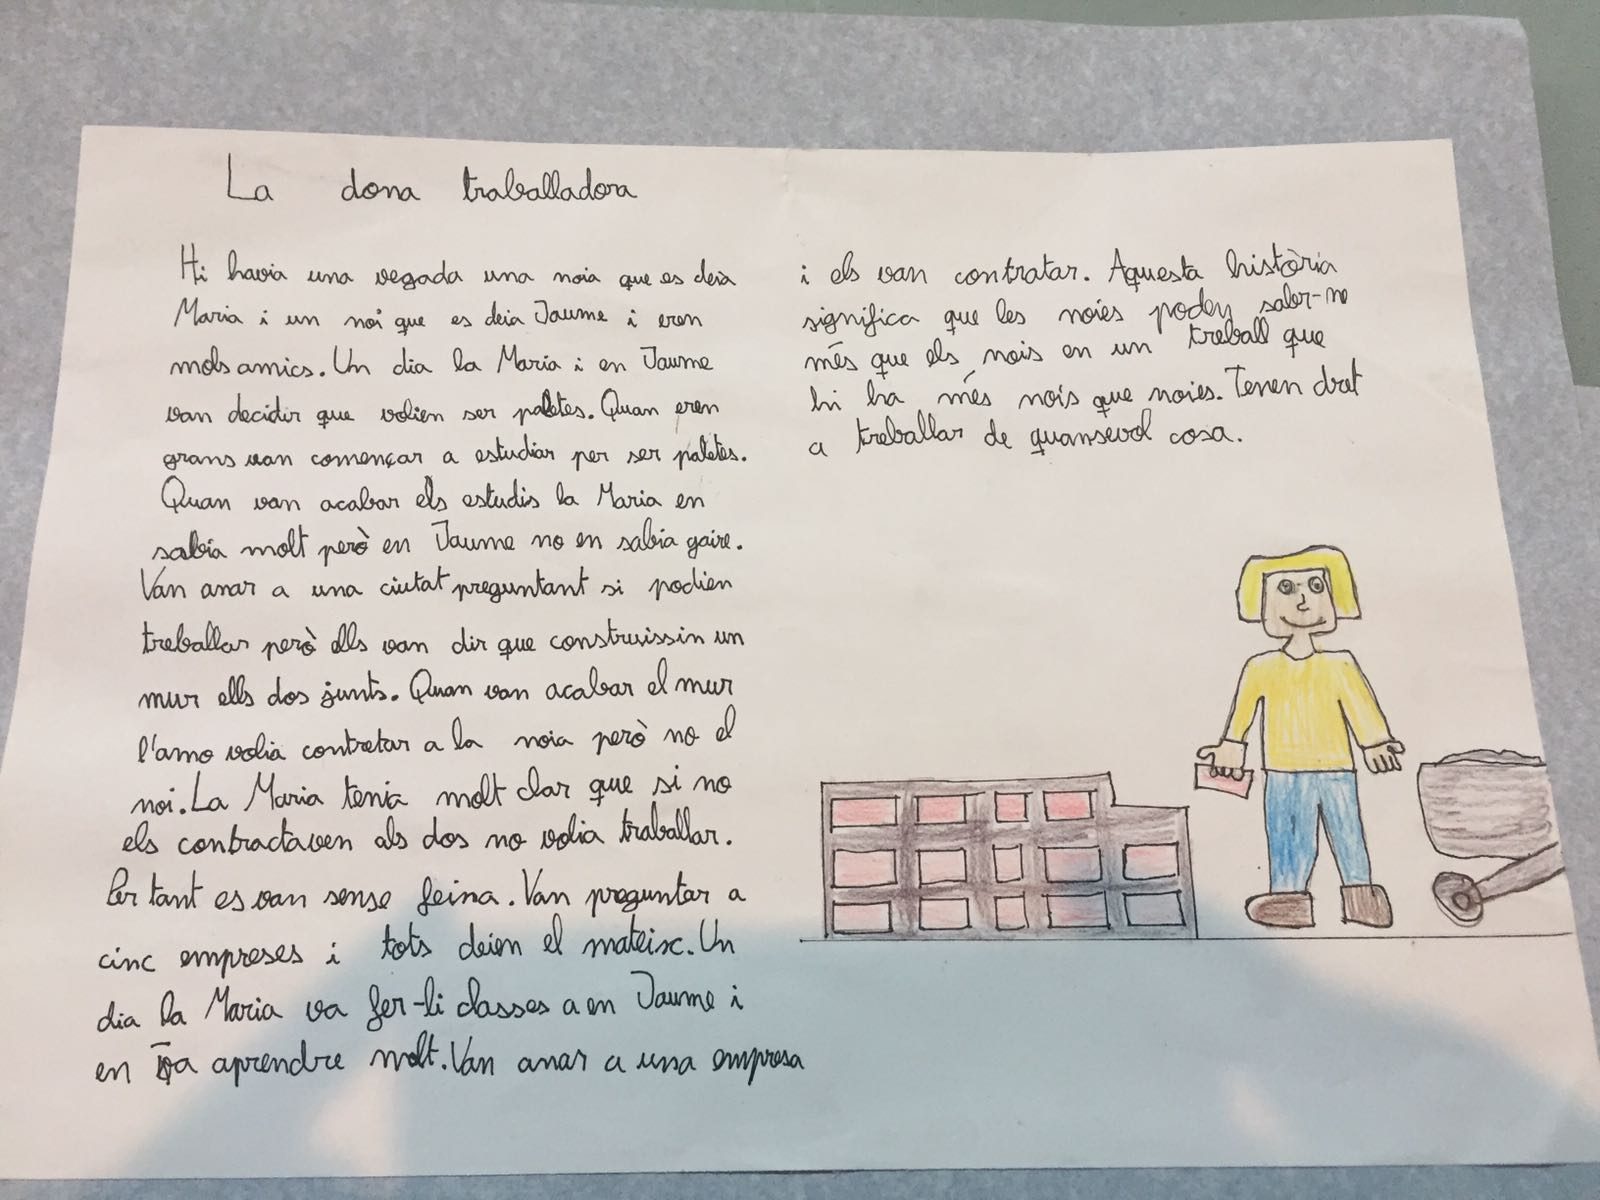 La dona traballadora
Hi havia una vegada una noia que es deia
Maria i un noi que es deia Jaume i eren
mols amics. Un dia la Maria i en Jaume
van decidir que volien ser paletes. Quan eren
grans van començar a estudiar per ser paletes.
Quan van acabar els estudis la Maria en
sabia molt però en Jaume no en sabia gaire.
Van anar a una ciutat preguntant si podien
treballar però ells van dir que construissin un
mur ells dos junts. Quan van acabar el mur
l'amo volia contretar a la noia però no el
noi. La Maria tenia molt clar que si no
els contractaven als dos no volia traballar.
Per tant es van sense feina. Van preguntar a
cinc empreses i tots deien el mateisc. Un
dia la Maria va fer-li classes a en Jaume i
en va aprendre molt. Van anar a una empresa
i els van contratar. Aquesta història
significa que les noies poden saber-ne
més que els nois en un treball que
hi ha més nois que noies. Tenen dret
a treballar de quansevol cosa.